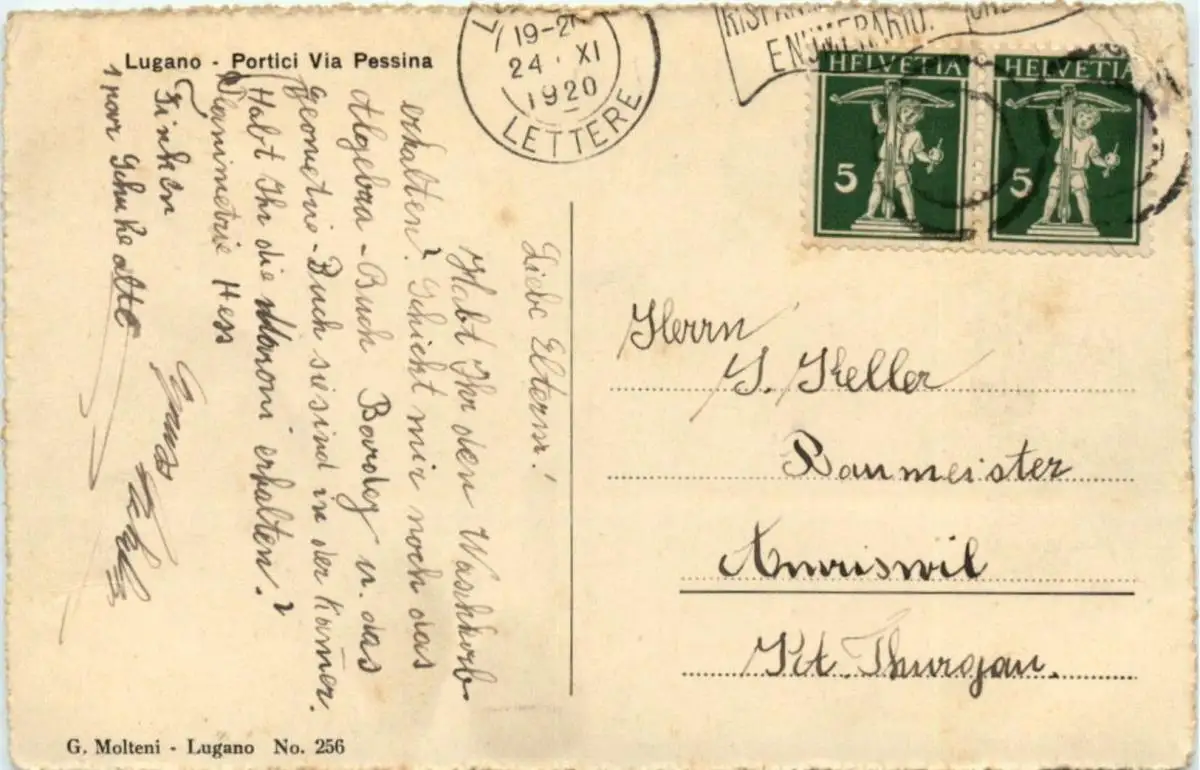 Lugano - Portici Via Pessina
19-2
24 · XI
1920
LETTERE
ENUMERARIO.
HELVETIA
5
HELVETIA
5
Liebe Eltern!
Habt Ihr den Waschkorb
erhalten? Schickt mir noch das
Algebra-Buch Bardey u. das
Geometrie-Buch sie sind in der Kam̄er.
Habt Ihr die Maroni erhalten?
Planimetrie Hess
Finken
1 paar Schuhe alte
Gruss
Herrn
J. Keller
Baumeister
Amriswil
Kt. Thurgau.
G. Molteni - Lugano No. 256